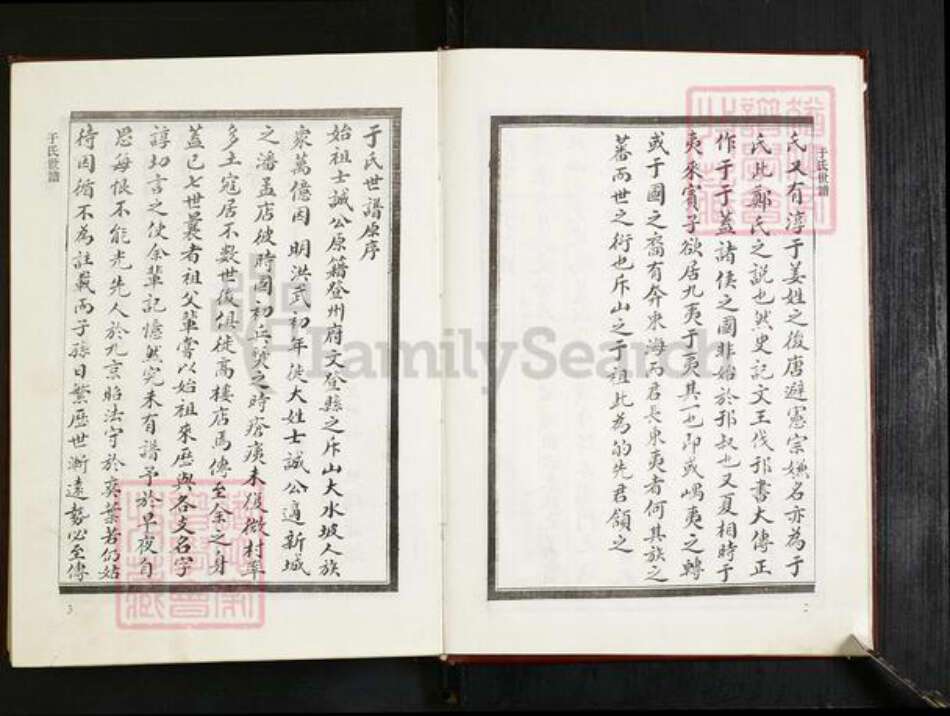 于氏世譜
氏又有淳于姜姓之後唐避憲宗嫌名亦為于
氏此鄭氏之說也然史記文王伐邘書大傳正
作于于蓋諸侯之國非始於邘叔也又夏相時于
夷來賓子欲居九夷于夷其一也即或嵎夷之轉
或于國之裔有奔東海而君長東夷者何其族之
蕃而世之衍也斥山之于祖此為的先君領之
2
于氏世譜原序
始祖士誠公原籍登州府文登縣之斥山大水坡人族
衆萬億因明洪武初年徙大姓士誠公適新城
之潘孟店彼時國初兵燹之時瘡痍未復微村率
多土寇居不數世後俱徙高樓店馬傳至余之身
蓋已七世曩者祖父輩嘗以始祖來歷與各支名字
諄切言之使余輩記憶然究未有譜予於早夜自
思每恨不能光先人於九京貽法守於奕葉若仍姑
待因循不為註載而子孫日繁歷世漸遠勢必至傳
于氏世譜
3
FamilySearch